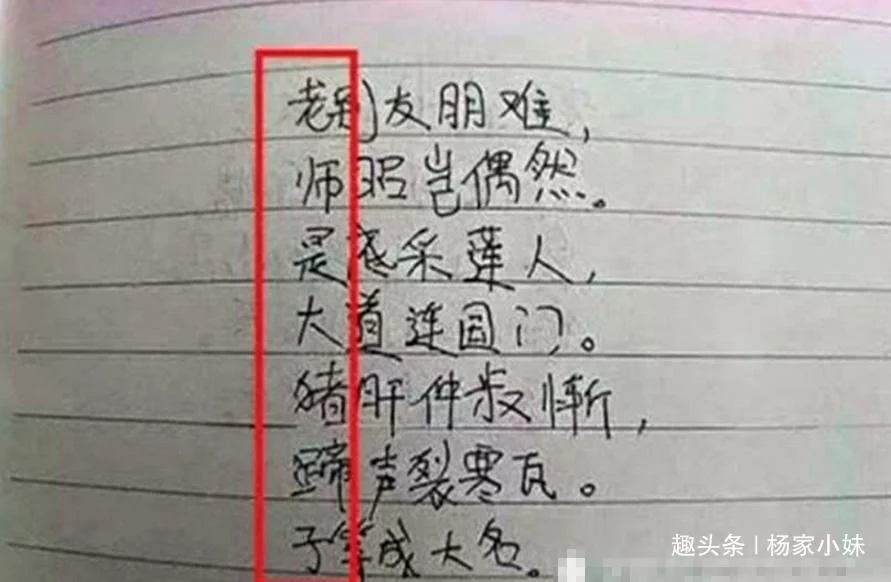 老别友朋难，
师昭岂偶然。
是底采莲人，
大道连国门。
猪肝仲叔惭，
蹄声裂寒瓦。
子等成大名。
趣头条 | 杨家小妹